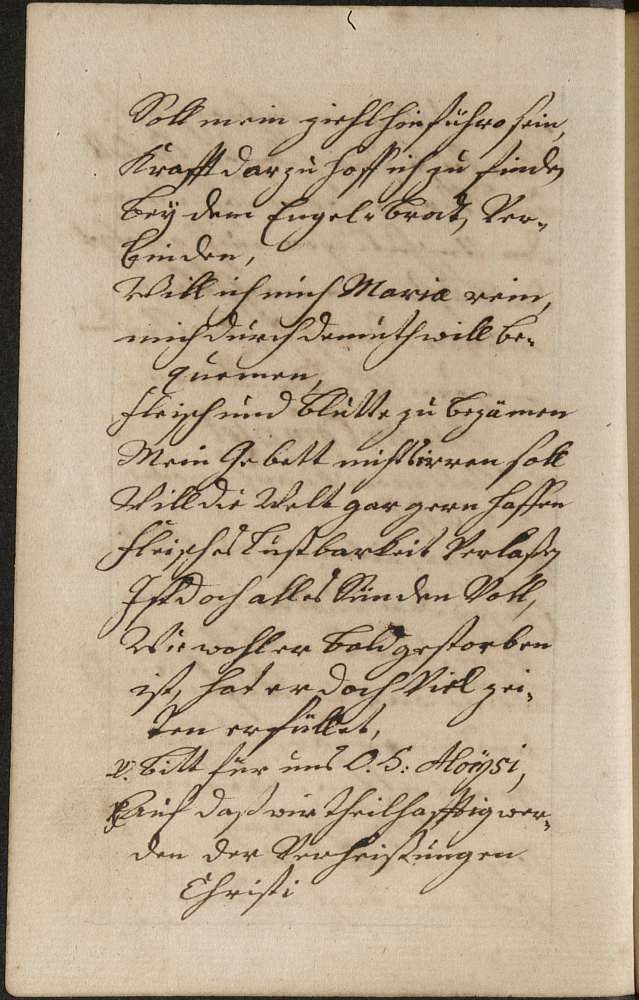 Soll mein ziehl hinführo sein,
Krafft darzu hoff ich zu finden
Bey dem Engel-Brodt, Ver-
binden,
Will ich mich Mariæ rein,
mich durch demuth will be-
quemen,
Fleisch und Blutte zu bezämen
Mein Gebett nicht irren soll
Will die Welt gar gern hassen
Fleisches Lustbarkeit Verlaßen
Ist doch alles Sünden Voll,
Wie wohl er bald gestorben
ist, hat er doch Viel zei-
ten erfüllet,
℣. Bitt für uns O. H: Aloÿsi,
℟ Auf daß wir theilhafftig wer-
den der Verheißungen
Christi